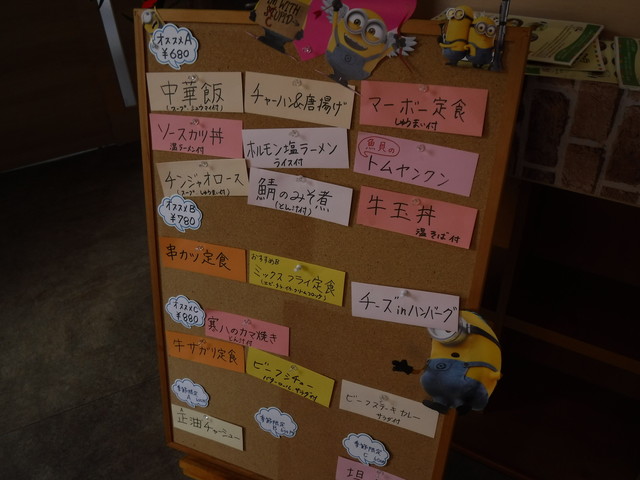 オススメA
¥680
中華飯
チャーハン&唐揚げ
マーボー定食
しゅうまい付
ソースカツ丼
温ラーメン付
ホルモン塩ラーメン
ライス付
魚貝の
トムヤンクン
チンジャオロース
(スープ しゅうまい付)
鯖のみそ煮
(とん汁付)
牛玉丼
温そば付
オススメB
¥780
串カツ定食
おすすめ!!
ミックスフライ定食
チーズinハンバーグ
オススメC
¥880
寒八のカマ焼き
とん汁付
牛サガリ定食
ビーフシチュー
バターロール サラダ付
ビーフステーキカレー
サラダ付
季節限定
季節限定
季節限定
正油チャーシュー